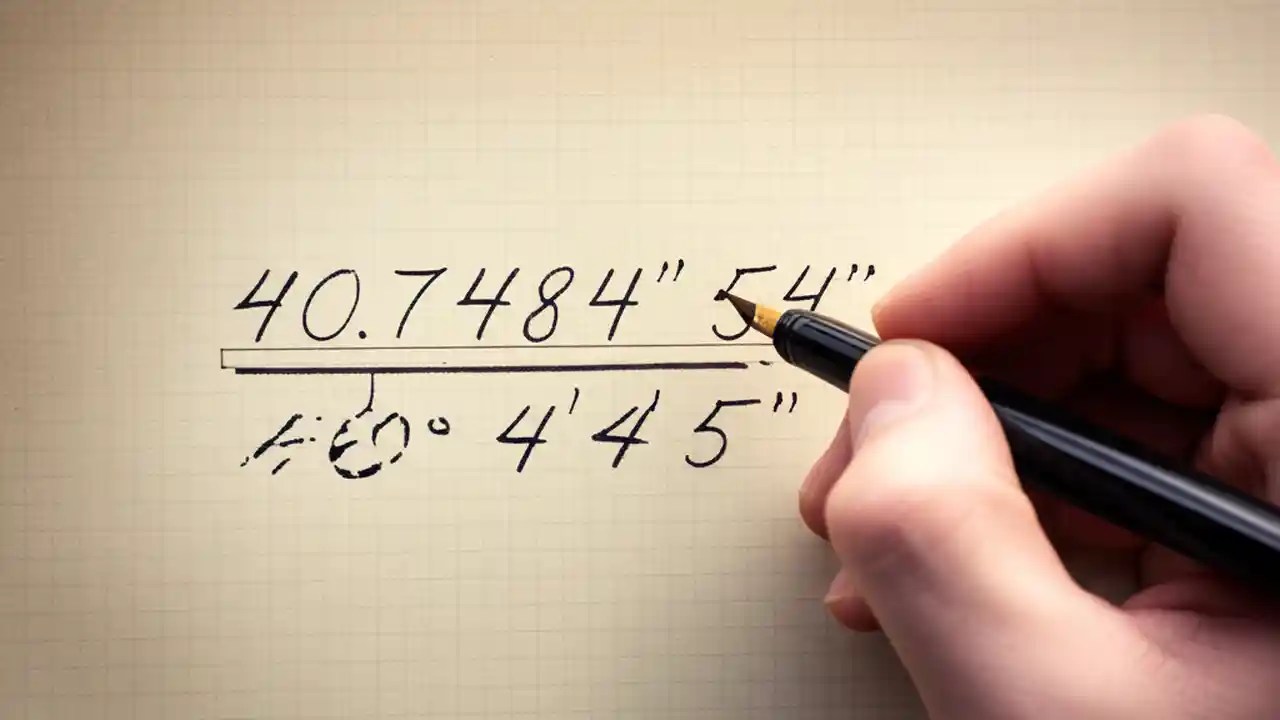 40.7484" 54"
° 4' 4' 5"